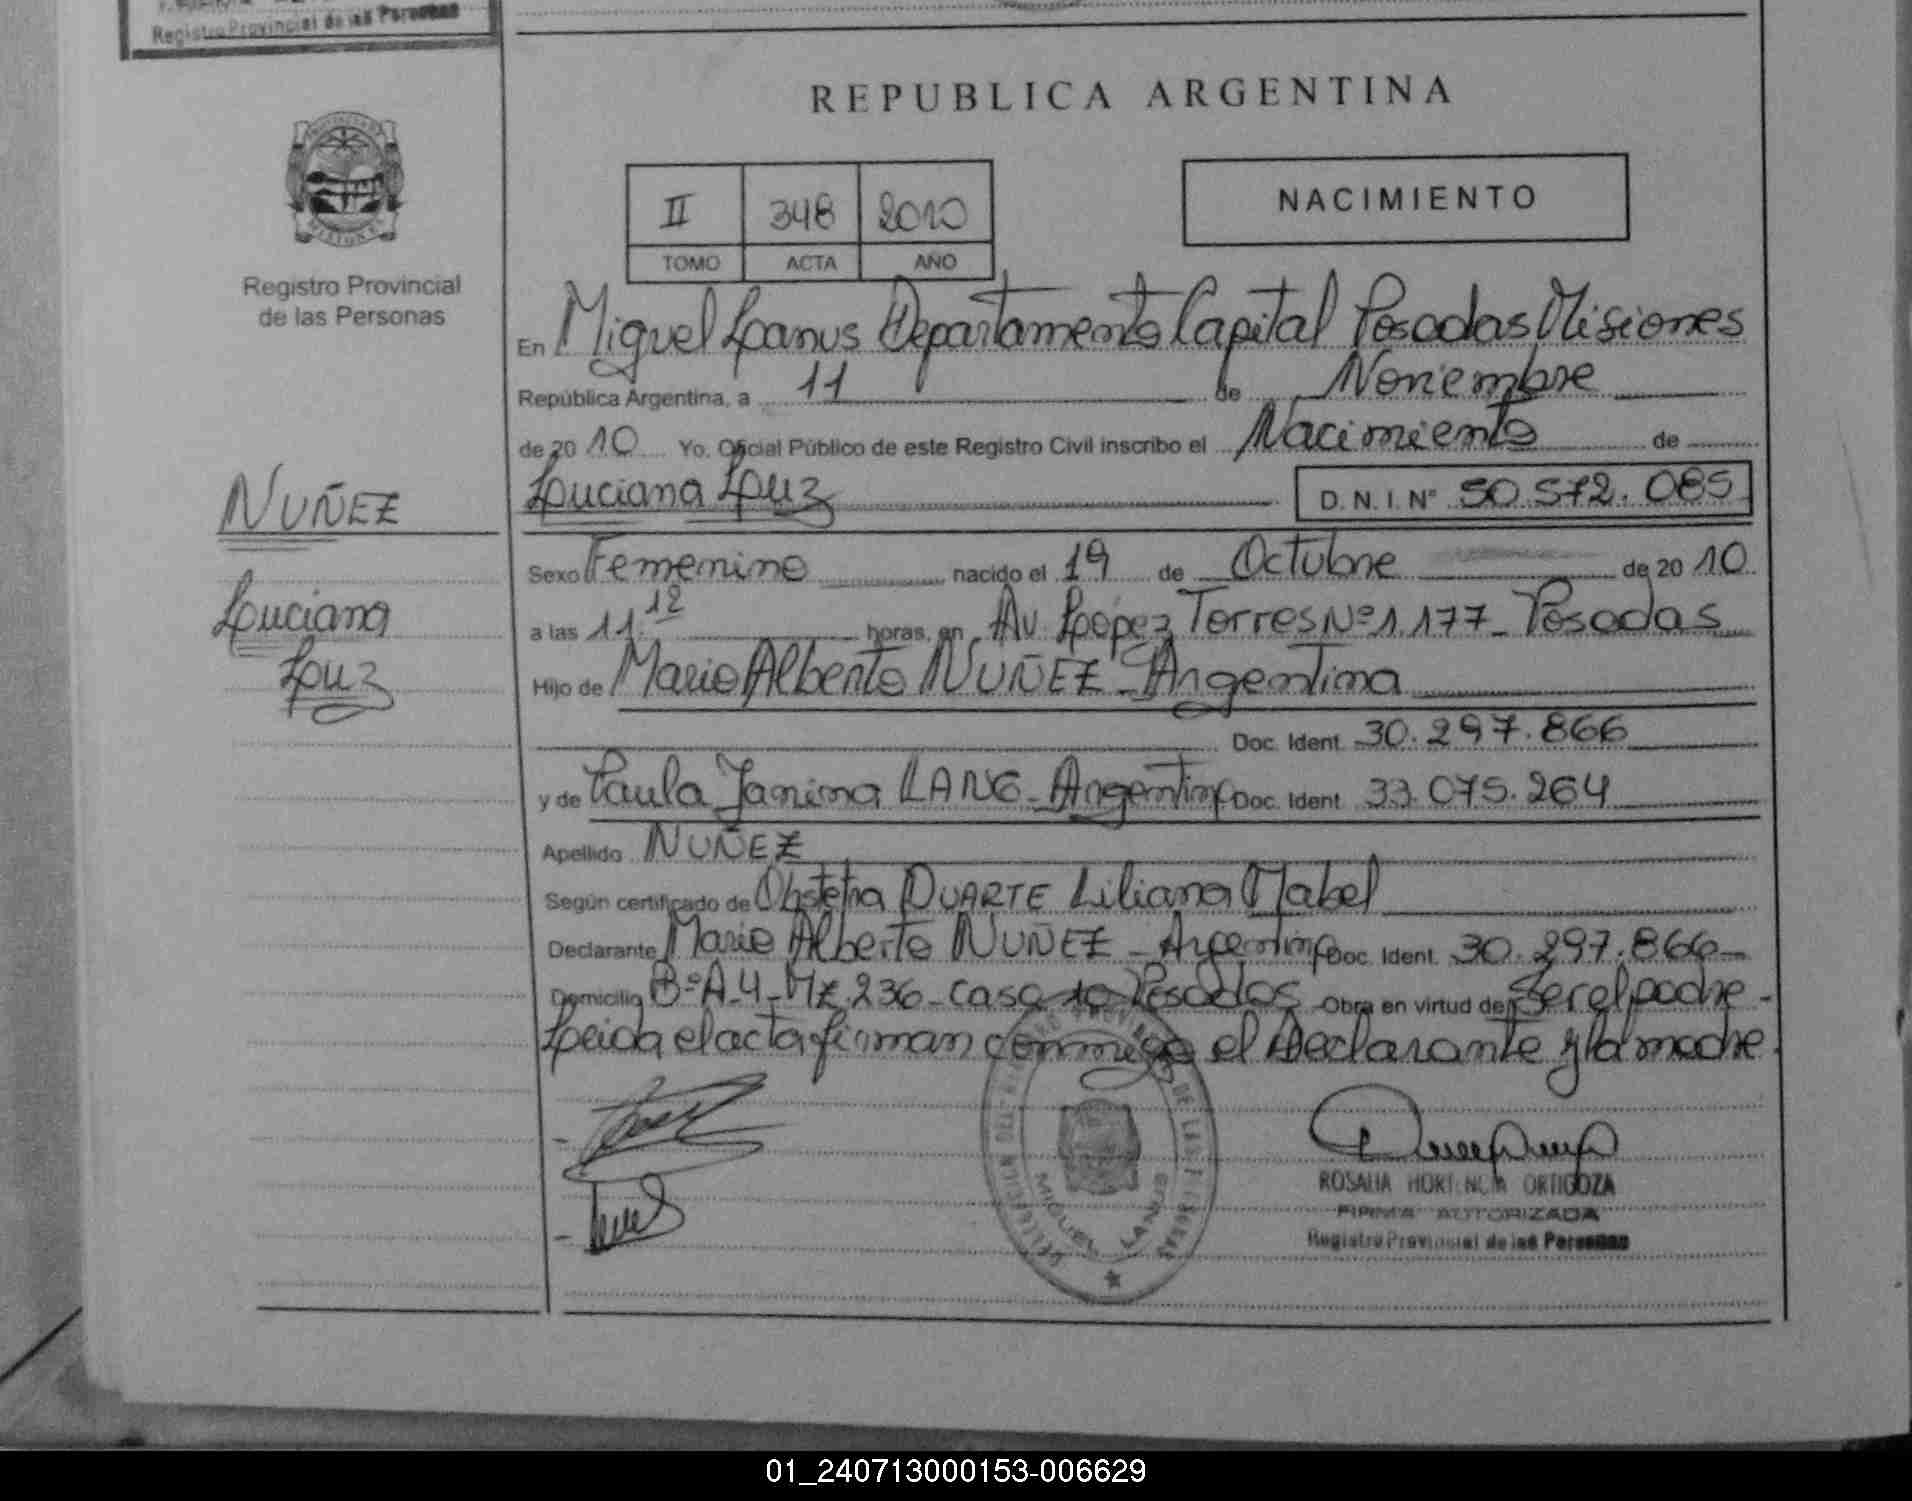 Registro Provincial de las Personas
REPUBLICA ARGENTINA
NACIMIENTO
II 348 2010
TOMO ACTA AÑO
Registro Provincial
de las Personas
En Miguel Lanus Departamento Capital Posadas Misiones
República Argentina, a 11 de Noviembre
de 2010 Yo, Oficial Público de este Registro Civil inscribo el Nacimiento de
Luciana Luz D.N.I. Nº 50.572.085
NUÑEZ
Luciana
Luz
Sexo Femenino nacido el 19 de Octubre de 2010
a las 11.12 horas, en Av. López Torres Nº 1177 - Posadas
Hijo de Mario Alberto NUÑEZ - Argentina
Doc. Ident. 30.297.866
y de Paula Janina LANG - Argentina Doc. Ident. 33.075.264
Apellido NUÑEZ
Según certificado de Obstetra DUARTE Liliana Mabel
Declarante Mario Alberto NUÑEZ - Argentina Doc. Ident. 30.297.866 -
Domicilio Bº A-4 - Mz. 236 - casa 10 Posadas Obra en virtud de Ser el padre -
Leida el acta firman conmigo el Declarante y la madre.
DELEGACION DEL REGISTRO PROVINCIAL DE LAS PERSONAS
MIGUEL LANUS
ROSALIA HORTENCIA ORTIGOZA
FIRMA AUTORIZADA
Registro Provincial de las Personas
01_240713000153-006629